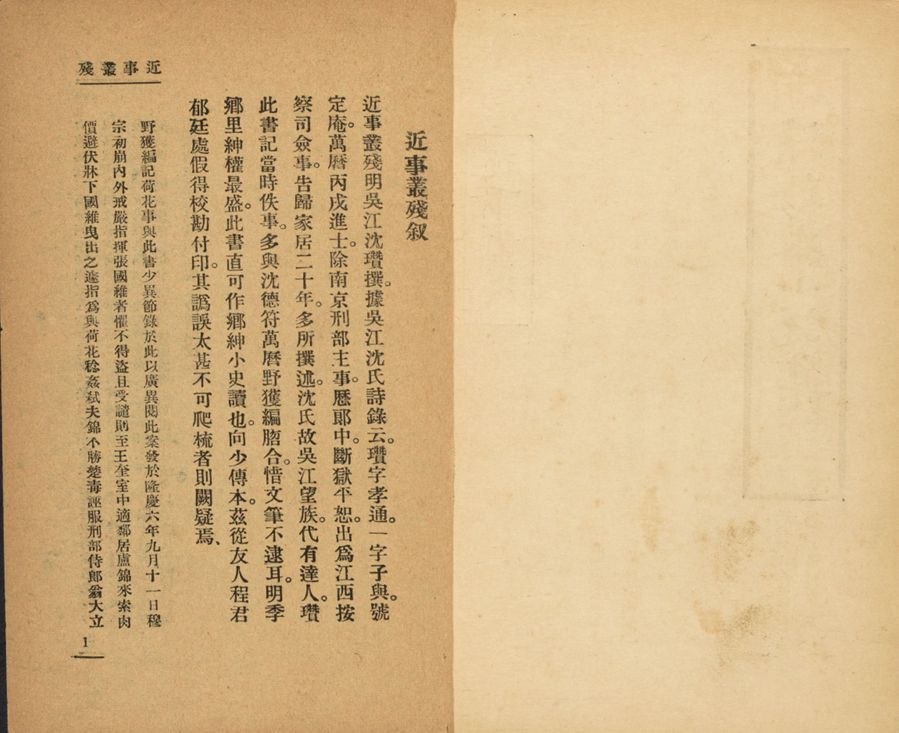 近事叢殘叙
近事叢殘明吳江沈瓚撰。據吳江沈氏詩錄云。瓚字孝通。一字子與。號
定庵。萬曆丙戌進士。除南京刑部主事。歷郞中。斷獄平恕。出爲江西按
察司僉事。告歸家居二十年。多所撰述。沈氏故吳江望族。代有達人。瓚
此書記當時佚事。多與沈德符萬曆野獲編脗合。惜文筆不逮耳。明季
鄕里紳權最盛。此書直可作鄕紳小史讀也。向少傳本。茲從友人程君
郁廷處假得校勘付印。其譌誤太甚不可爬梳者則闕疑焉、
野獲編記荷花事與此書少異節錄於此以廣異聞此案發於隆慶六年九月十一日穆
宗初崩內外戒嚴指揮張國維者懼不得盜且受譴則至王奎室中適鄰居盧錦來索肉
價避伏牀下國維曳出之遽指爲與荷花稔姦弒夫錦不勝楚毒誣服刑部侍郎翁大立
近事叢殘
1